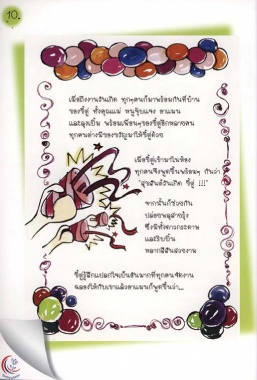 10.
เมื่อถึงงานวันเกิด ทุกๆคนก็มาพร้อมกันที่บ้าน
ของซี่ตู่ ทั้งคุณแม่ หนูจุ๊บแจง อาแมน
และลุงเป็ม พร้อมเพื่อนๆของซี่ตู่อีกหลายคน
ทุกคนต่างมีของขวัญมาให้ซี่ตู่ด้วย
เมื่อซี่ตู่เข้ามาในห้อง
ทุกคนจึงพูดขึ้นพร้อมๆ กันว่า
"สุขสันต์วันเกิด ซี่ตู่ !!!"
จากนั้นก็ช่วยกัน
ปล่อยพลุสายรุ้ง
ซึ่งมีทั้งดาวกระดาษ
และริบบิ้น
หลากสีสันสวยงาม
ซี่ตู่รู้สึกแปลกใจเป็นอันมากที่ทุกคนจัดงาน
ฉลองให้กับเขาแล้วอาแมนก็พูดขึ้นว่า...